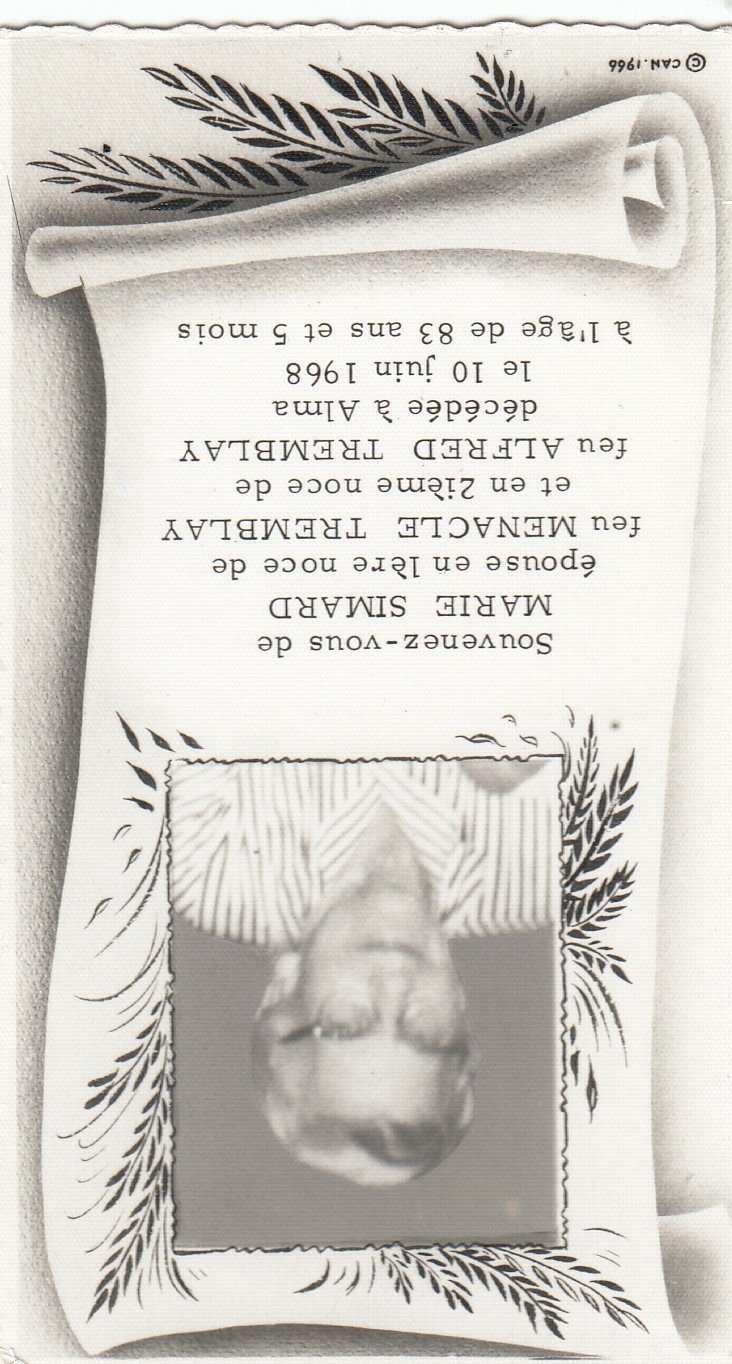 Souvenez-vous de
MARIE SIMARD
épouse en 1ère noce de
feu MENACLE TREMBLAY
et en 2ième noce de
feu ALFRED TREMBLAY
décédée à Alma
le 10 juin 1968
à l'âge de 83 ans et 5 mois
© CAN. 1966